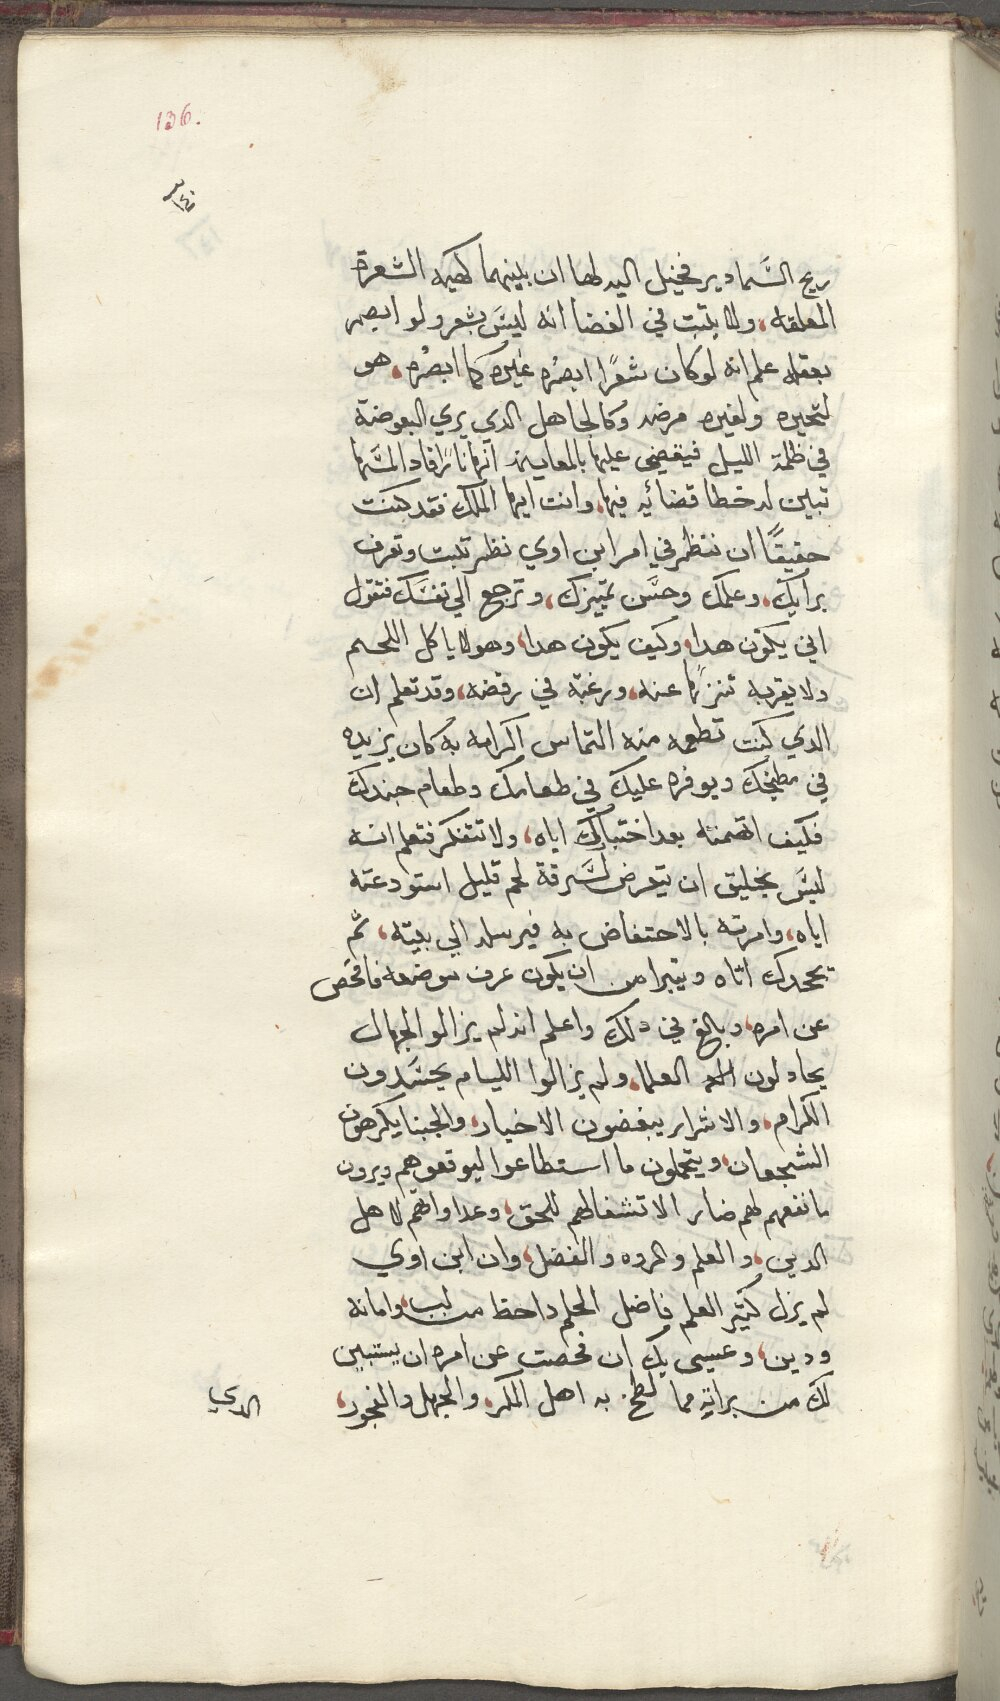 136.
ريح السَّمادير فخيل اليه لها ان بلينهما كهيه الشعرة
المعلقه، ولا يثبت في القضا انه ليسَ بشعر ولو ابصر
بعقله علم انه لو كان شعرًا ابصرُه غيره كما ابصرُه، هو
لتحيره ولغيره مرضه وكالجاهل الدي يري البعوضة
في ظلمة الليل فيقضي عليها بالمعاينه انها نارًا فاد المسَّها
تبين له خطا قضائه فيها، وانت ايها الملك فقد كنت
حقيقًا ان ننظر في امر ابن اوي نظر تلبت وتعرف
برايك، وعلمك وحسَّن تمييزك، وترجع الي نفسَّك فتقول
اني يكون هدا، وكيف يكون هدا، وهو لا ياكل اللحم
ولا يقربه تنزهًا عنه، ورغبة في رفضه، وقد تعلم ان
الدي كنت تطعمه منه التماس الكرامه به كان يزيده
في مطبخك ويوفره عليك في طعامك وطعام جندك
فكيف اتهمته بعد اختبارك اياه، ولا تتفكر فتعلم انه
ليسَ بخليق ان يتعرض لسَّرقة لحم قليل استودعته
اياه، وامرته بالاحتفاض به فيرسله الي بيته، ثم
يجحدك اتاه ويتبرا من ان يكون عرف موضعه فافحَص
عن امره، وبالغ في دلك واعلم انه لم يزالو الجهال
يجادلون العلما، ولم يزالوا الليام يحسَّدون
الكرام، والاشرار يبغضون الاخيار، والجبنا يكرهون
الشجعان، ويتحملون ما استطاعوا ليوقعوهم ويرون
ما نفعهم لهم ضار الا تشفالهم للحق، وعداواتهم لاهل
الدين، والعلم والمروه والفضل، وان ابن اوي
لم يزل كثير العلم فاضل الحلم داحظ من لب، وامانه
ودين، وعسى يك ان فحصت عن امره ان يستبين
لك من براته مما لطخ به اهل المكر، والجهل والفجور،
الدي